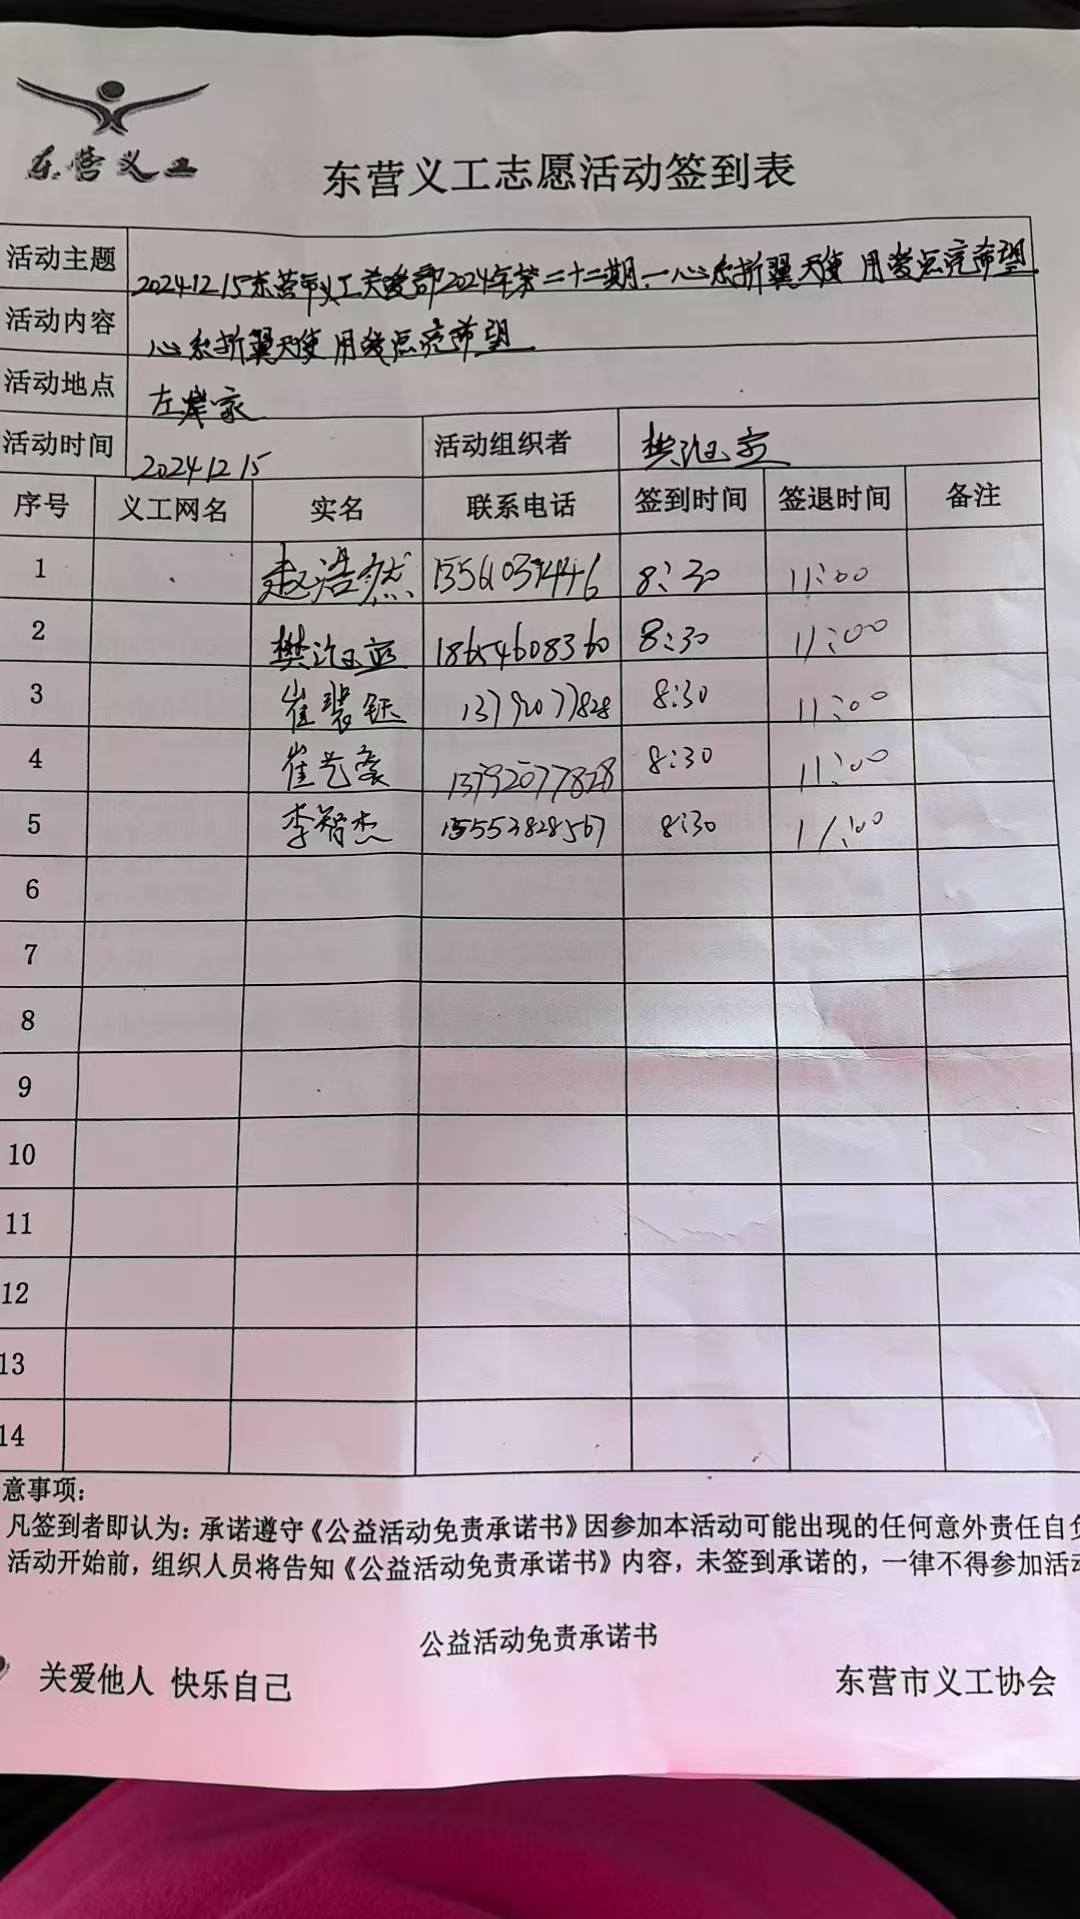 东营义工
东营义工志愿活动签到表
活动主题 2024.12.15东营市义工关爱部2024年第二十二期.一心系折翼天使 用爱点亮希望
活动内容 心系折翼天使 用爱点亮希望
活动地点 左岸家
活动时间 2024.12.15 活动组织者 樊
序号 义工网名 实名 联系电话 签到时间 签退时间 备注
1 赵浩然 8:30 11:00
2 樊 18654608360 8:30 11:00
3 崔裴钰 13792077828 8:30 11:00
4 崔艺豪 13792077828 8:30 11:00
5 李智杰 15553828567 8:30 11:00
6
7
8
9
10
11
12
13
14
意事项：
凡签到者即认为：承诺遵守《公益活动免责承诺书》因参加本活动可能出现的任何意外责任自负
活动开始前，组织人员将告知《公益活动免责承诺书》内容，未签到承诺的，一律不得参加活动
公益活动免责承诺书
关爱他人 快乐自己 东营市义工协会